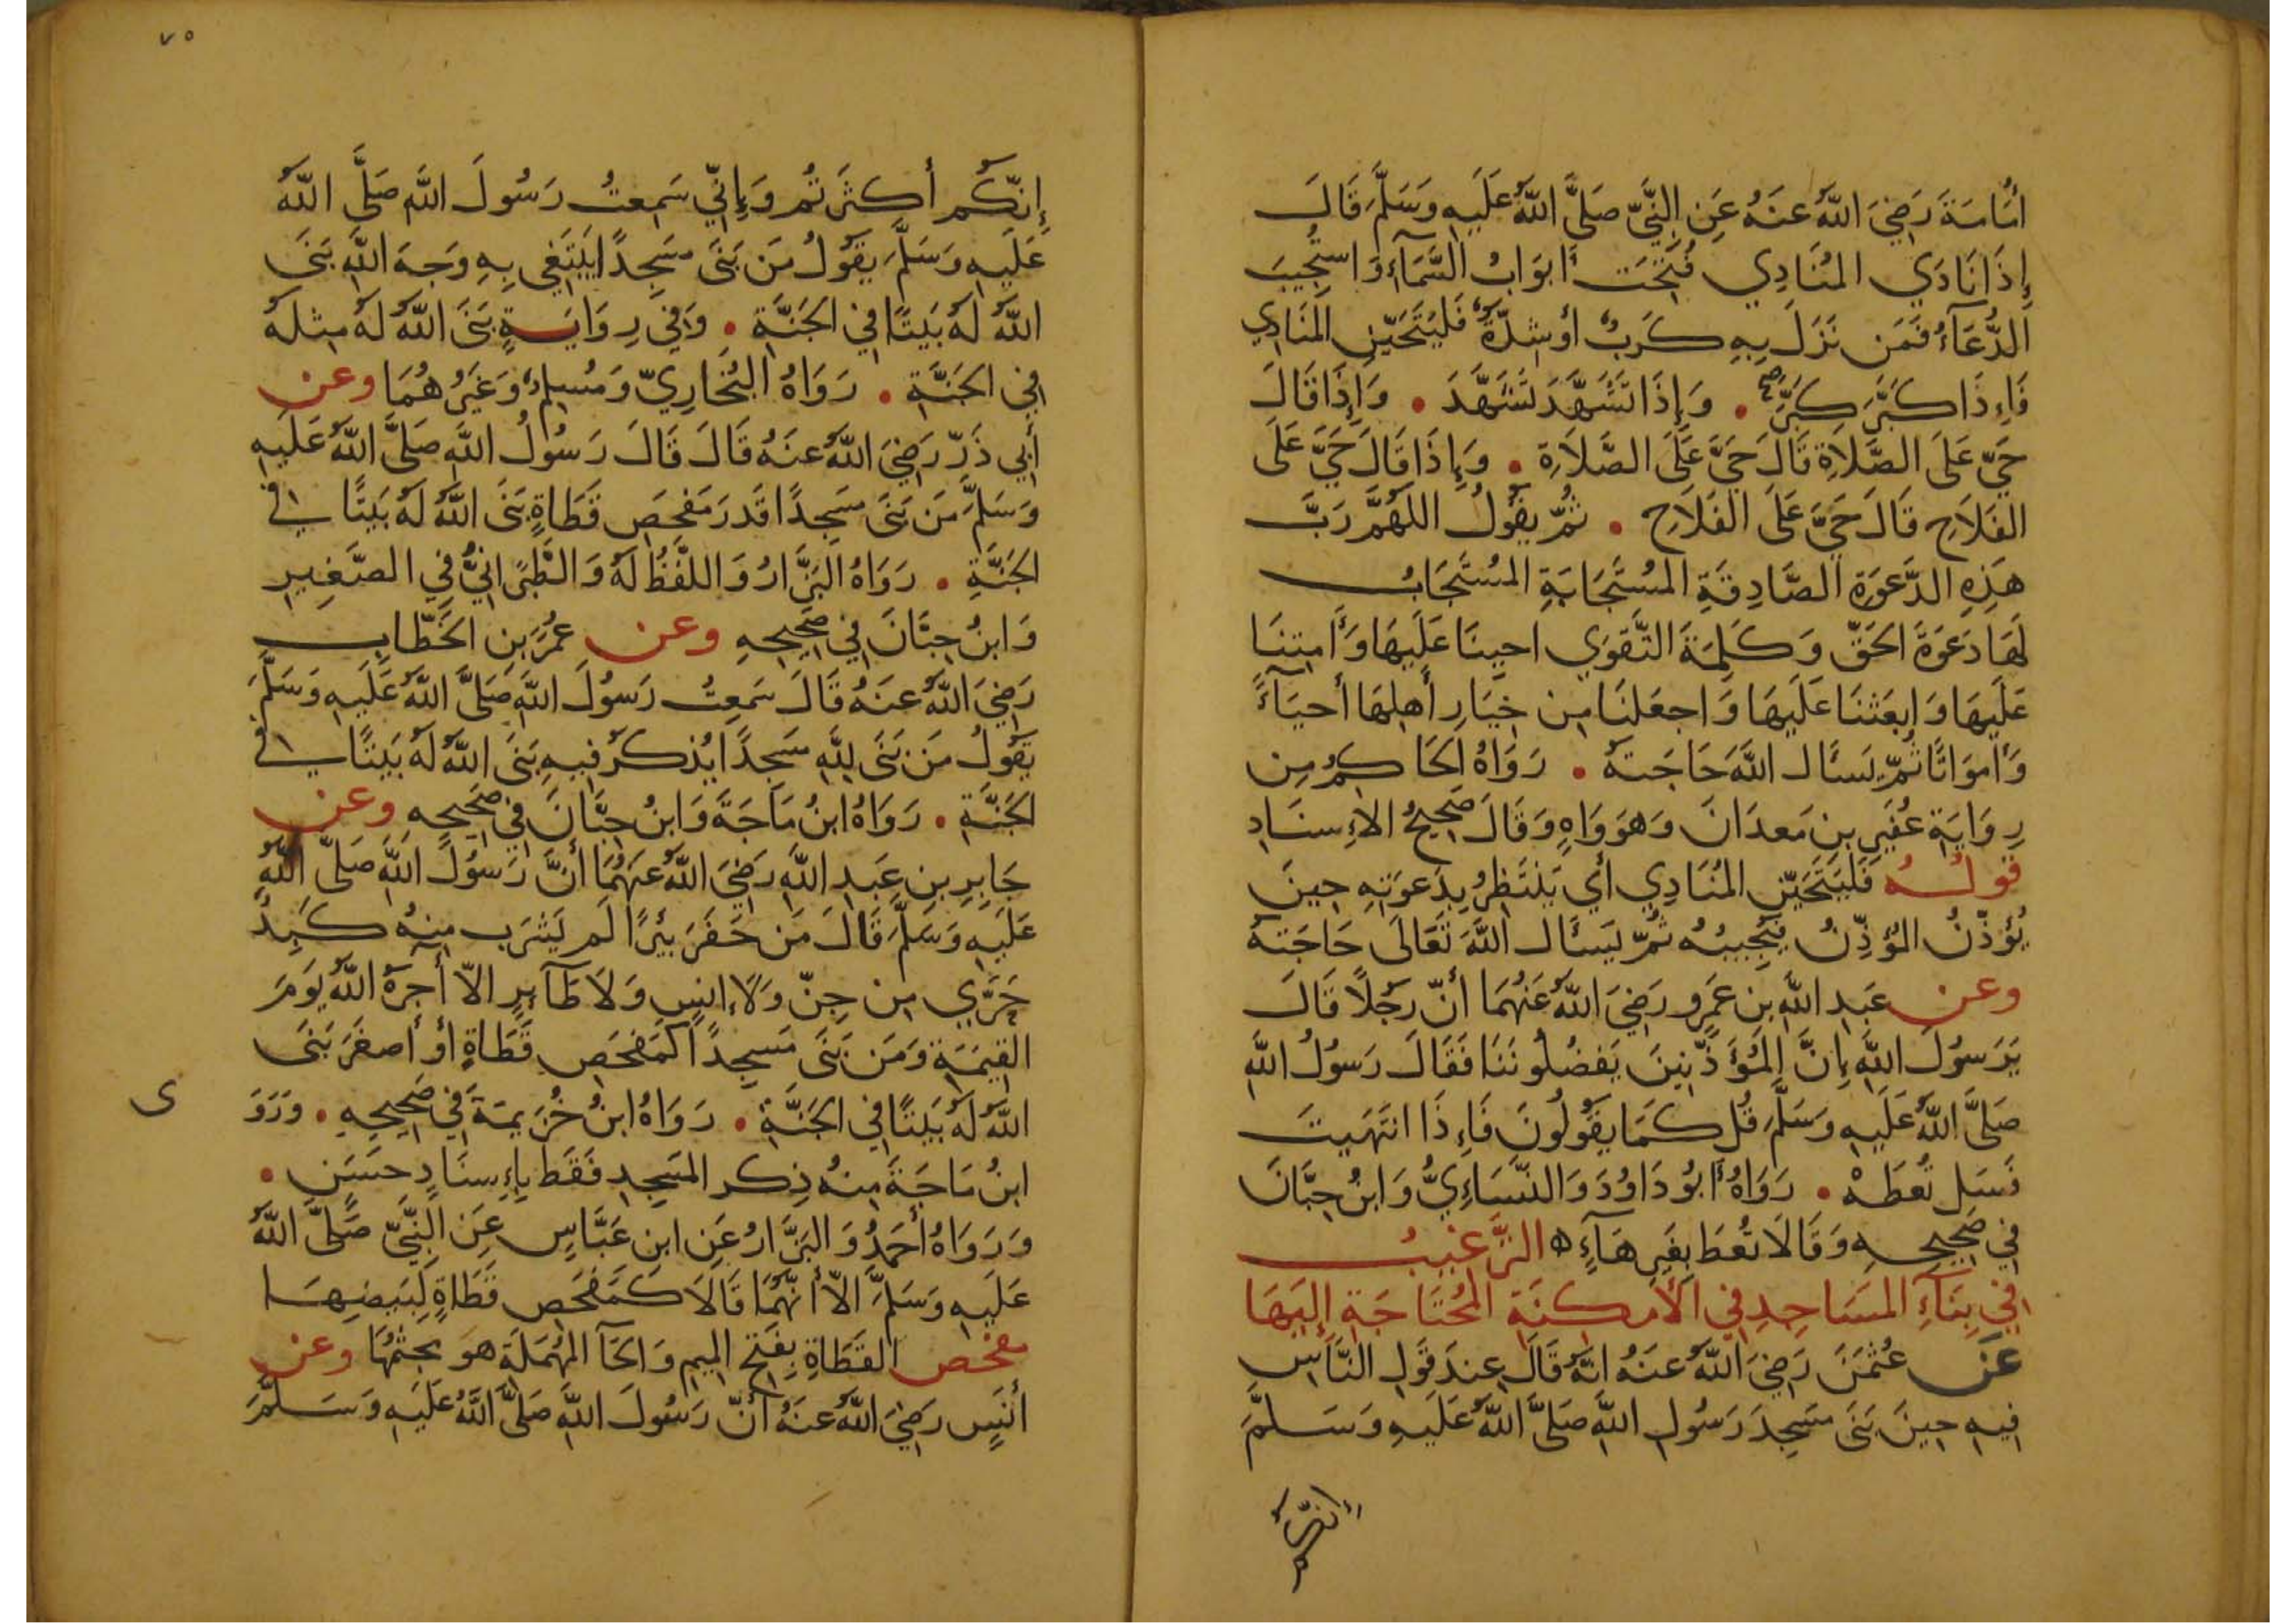 أُمَامَةَ رَضِيَ اللّٰهُ عَنهُ عَنِ النَّبِيِّ صَلَّى اللّٰهُ عَلَيهِ وَسَلَّمَ قَالَ
إِذَا نَادَى المُنَادِي فُتِحَت أَبوَابُ السَّمَآءِ وَاستُجِيبَ
الدُّعَآءُ فَمَن نَزَلَ بِهِ كَربٌ أَو شِدَّةٌ فَليَتَحَيَّنِ المُنَادِي
فَإِذَا كَبَّرَ كَبَّرَ صح . وَإِذَا تَشَهَّدَ تَشَهَّدَ . وَإِذَا قَالَ
حَيَّ عَلَى الصَّلَاةِ قَالَ حَيَّ عَلَى الصَّلَاةِ . وَإِذَا قَالَ حَيَّ عَلَى
الفَلَاحِ قَالَ حَيَّ عَلَى الفَلَاحِ . ثُمَّ يَقُولُ اللّٰهُمَّ رَبَّ
هَذِهِ الدَّعوَةِ الصَّادِقَةِ المُستَجَابَةِ المُستَجَابُ
لَهَا دَعوَةَ الحَقِّ وَكَلِمَةَ التَّقوَى احيِنَا عَلَيهَا وَأَمِتنَا
عَلَيهَا وَابعَثنَا عَلَيهَا وَاجعَلنَا مِن خِيَارِ أَهلِهَا أَحيَآءً
وَأَموَاتًا ثُمَّ يَسئَال اللّٰهَ حَاجَتهُ . رَوَاهُ الحَاكِمُ مِن
رِوَايَةِ عُفَيرِ بنِ مَعدَانَ وَهوَ وَاهٍ وَقَالَ صَحِيحُ الإِسنَادِ
قولُهُ فَليَتَحَيَّنِ المُنَادِي أَي يَنتَظِرُ بِدَعوَتِهِ حِينَ
يُؤَذِّنُ المُؤَذِّنُ فَيُجِيبُهُ ثُمَّ يَسئَال اللّٰهَ تَعَالَى حَاجَتهُ
وعن عَبدِ اللّٰهِ بنِ عَمرٍو رَضِيَ اللّٰهُ عَنهُمَا أَنَّ رَجُلًا قَالَ
يَرَسُولَ اللّٰهِ إِنَّ المُؤَذِّنِينَ يَفضُلُونَنَا فَقَالَ رَسُولُ اللّٰهِ
صَلَّى اللّٰهُ عَلَيهِ وَسَلَّمَ قُل كَمَا يَقُولُونَ فَإِذَا انتَهَيتَ
فَسَل تُعطَهْ . رَوَاهُ أَبُو دَاوُدَ وَالنَّسَاءِيُّ وَابنُ حِبَّانَ
فِي صَحِيحِهِ وَقَالَا تُعطَ بِغَيرِ هَآءٍ ه التَّرغيبُ
فِي بِنَآءِ المَسَاجِدِ فِي الأَمكِنَةِ المُحتَاجَةِ إِلَيهَا
عَن عُثمَنَ رَضِيَ اللّٰهُ عَنهُ انَّهُ قَالَ عِندَ قَولِ النَّاسِ
فِيهِ حِينَ بَنَى مَسجِدَ رَسُولِ اللّٰهِ صَلَّى اللّٰهُ عَلَيهِ وَسَلَّمَ
إنكم
٧٥
إِنَّكُم أَكثَرتُم وَإِنِّي سَمِعتُ رَسُولَ اللّٰهِ صَلَّى اللّٰهُ
عَلَيهِ وَسَلَّمَ يَقُولُ مَن بَنَى مَسجِدًا يَبتَغِي بِهِ وَجهَ اللّٰهِ بَنَى
اللّٰهُ لَهُ بَيتًا فِي الجَنَّةِ . وَفِي رِوَايَةٍ بَنَى اللّٰهُ لَهُ مِثلَهُ
فِي الجَنَّةِ . رَوَاهُ البُخَارِيّ وَمُسلِمٌ وَغَيرُهُمَا وعن
أَبِي ذَرٍّ رَضِيَ اللّٰهُ عَنهُ قَالَ قَالَ رَسُولُ اللّٰهِ صَلَّى اللّٰهُ عَلَيهِ
وَسَلَّمَ مَن بَنَى مَسجِدًا قَدرَ مَفحَصِ قَطَاةٍ بَنَى اللّٰهُ لَهُ بَيتًا فِي
الجَنَّةِ . رَوَاهُ البَزَّارُ وَاللَّفظُ لَهُ وَالطَّبَرَانِيُّ فِي الصَّغِيرِ
وَابنُ حِبَّانَ فِي صَحِيحِهِ وعن عُمَرَ بنِ الخَطَّابِ
رَضِيَ اللّٰهُ عَنهُ قَالَ سَمِعتُ رَسُولَ اللّٰهِ صَلَّى اللّٰهُ عَلَيهِ وَسَلَّمَ
يَقُولُ مَن بَنَى لِلّٰهِ مَسجِدًا يُذكَرُ فِيهِ بَنَى اللّٰهُ لَهُ بَيتًا فِي
الجَنَّةِ . رَوَاهُ ابنُ مَاجَةَ وَابنُ حِبَّانَ فِي صَحِيحِهِ وعن
جَابِرِ بنِ عَبدِ اللّٰهِ رَضِيَ اللّٰهُ عَنهُمَا أَنَّ رَسُولَ اللّٰهِ صَلَّى اللّٰهُ
عَلَيهِ وَسَلَّمَ قَالَ مَن حَفَرَ بِئرًا لَم يَشرَب مِنهُ كَبِدٌ
حَرَّى مِن جِنٍّ وَلَا إِنسٍ وَلَا طَآئِرٍ الَّا آجَرَهُ اللّٰهُ يَومَ
القِيمَةِ وَمَن بَنَى مَسجِدًا كَمَفحَصِ قَطَاةٍ أَو أَصغَرَ بَنَى
اللّٰهُ لَهُ بَيتًا فِي الجَنَّةِ . رَوَاهُ ابنُ خُزَيمَةَ فِي صَحِيحِهِ . وَرَوَ
ى
ابنُ مَاجَةَ مِنهُ ذِكر المَسجِدِ فَقَط بِإِسنَادٍ حَسَنٍ .
وَرَوَاهُ أَحمَدُ وَالبَزَّارُ عَنِ ابنِ عَبَّاسٍ عَنِ النَّبِيِّ صَلَّى اللّٰهُ
عَلَيهِ وَسَلَّمَ الَّا أَنَّهُمَا قَالَا كَمَفحَصِ قَطَاةٍ لِبَيضِهَا
مفحص القَطَاةِ بِفَتحِ المِيمِ وَالحَآ المُهمَلَةِ هوَ مَجثَمُهَا وعن
أَنَسٍ رَضِيَ اللّٰهُ عَنهُ أَنَّ رَسُولَ اللّٰهِ صَلَّى اللّٰهُ عَلَيهِ وَسَلَّمَ